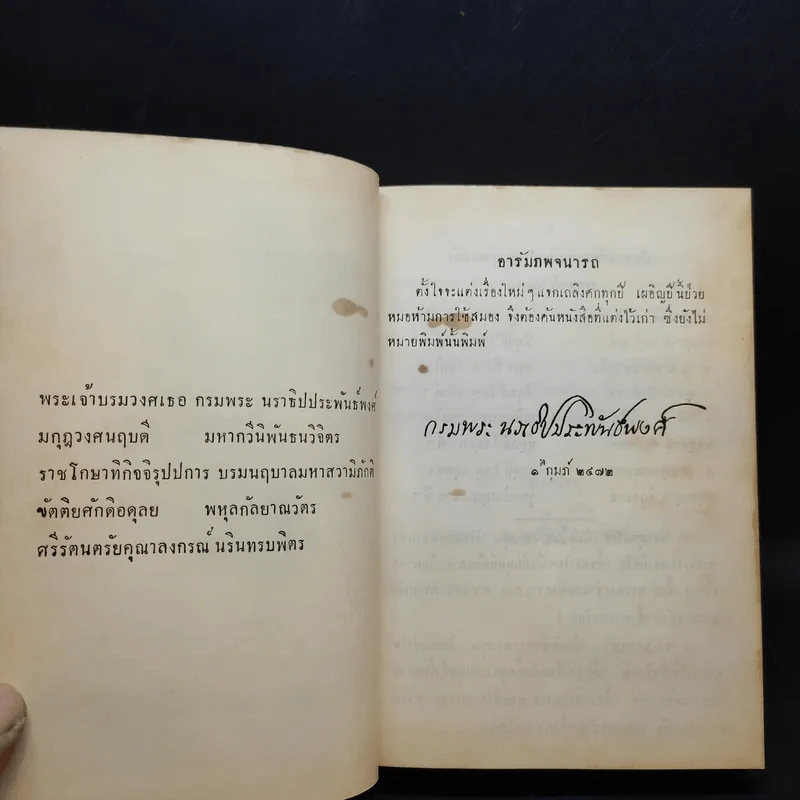 พระเจ้าบรมวงศเธอ กรมพระ นราธิปประพันธ์พงศ์
มกุฎวงศนฤบดี มหากวีนิพันธนวิจิตร
ราชโกษาทิกิจจิรุปปการ บรมนฤบาลมหาสวามิภักดิ
ขัตติยศักดิอดุลย พหุลกัลยาณวัตร
ศรีรัตนตรัยคุณาลงกรณ์ นรินทรบพิตร
อารัมภพจนารถ
ตั้งใจจะแต่งเรื่องใหม่ๆ แจกเถลิงศักทุกปี เผอิญปีนี้ป่วย
หมอห้ามการใช้สมอง จึงต้องค้นหนังสือที่แต่งไว้เก่า ซึ่งยังไม่
หมายพิมพ์นั้นพิมพ์
กรมพระ นราธิปประพันธ์พงศ์
๑ กุมภ์ ๒๔๗๒